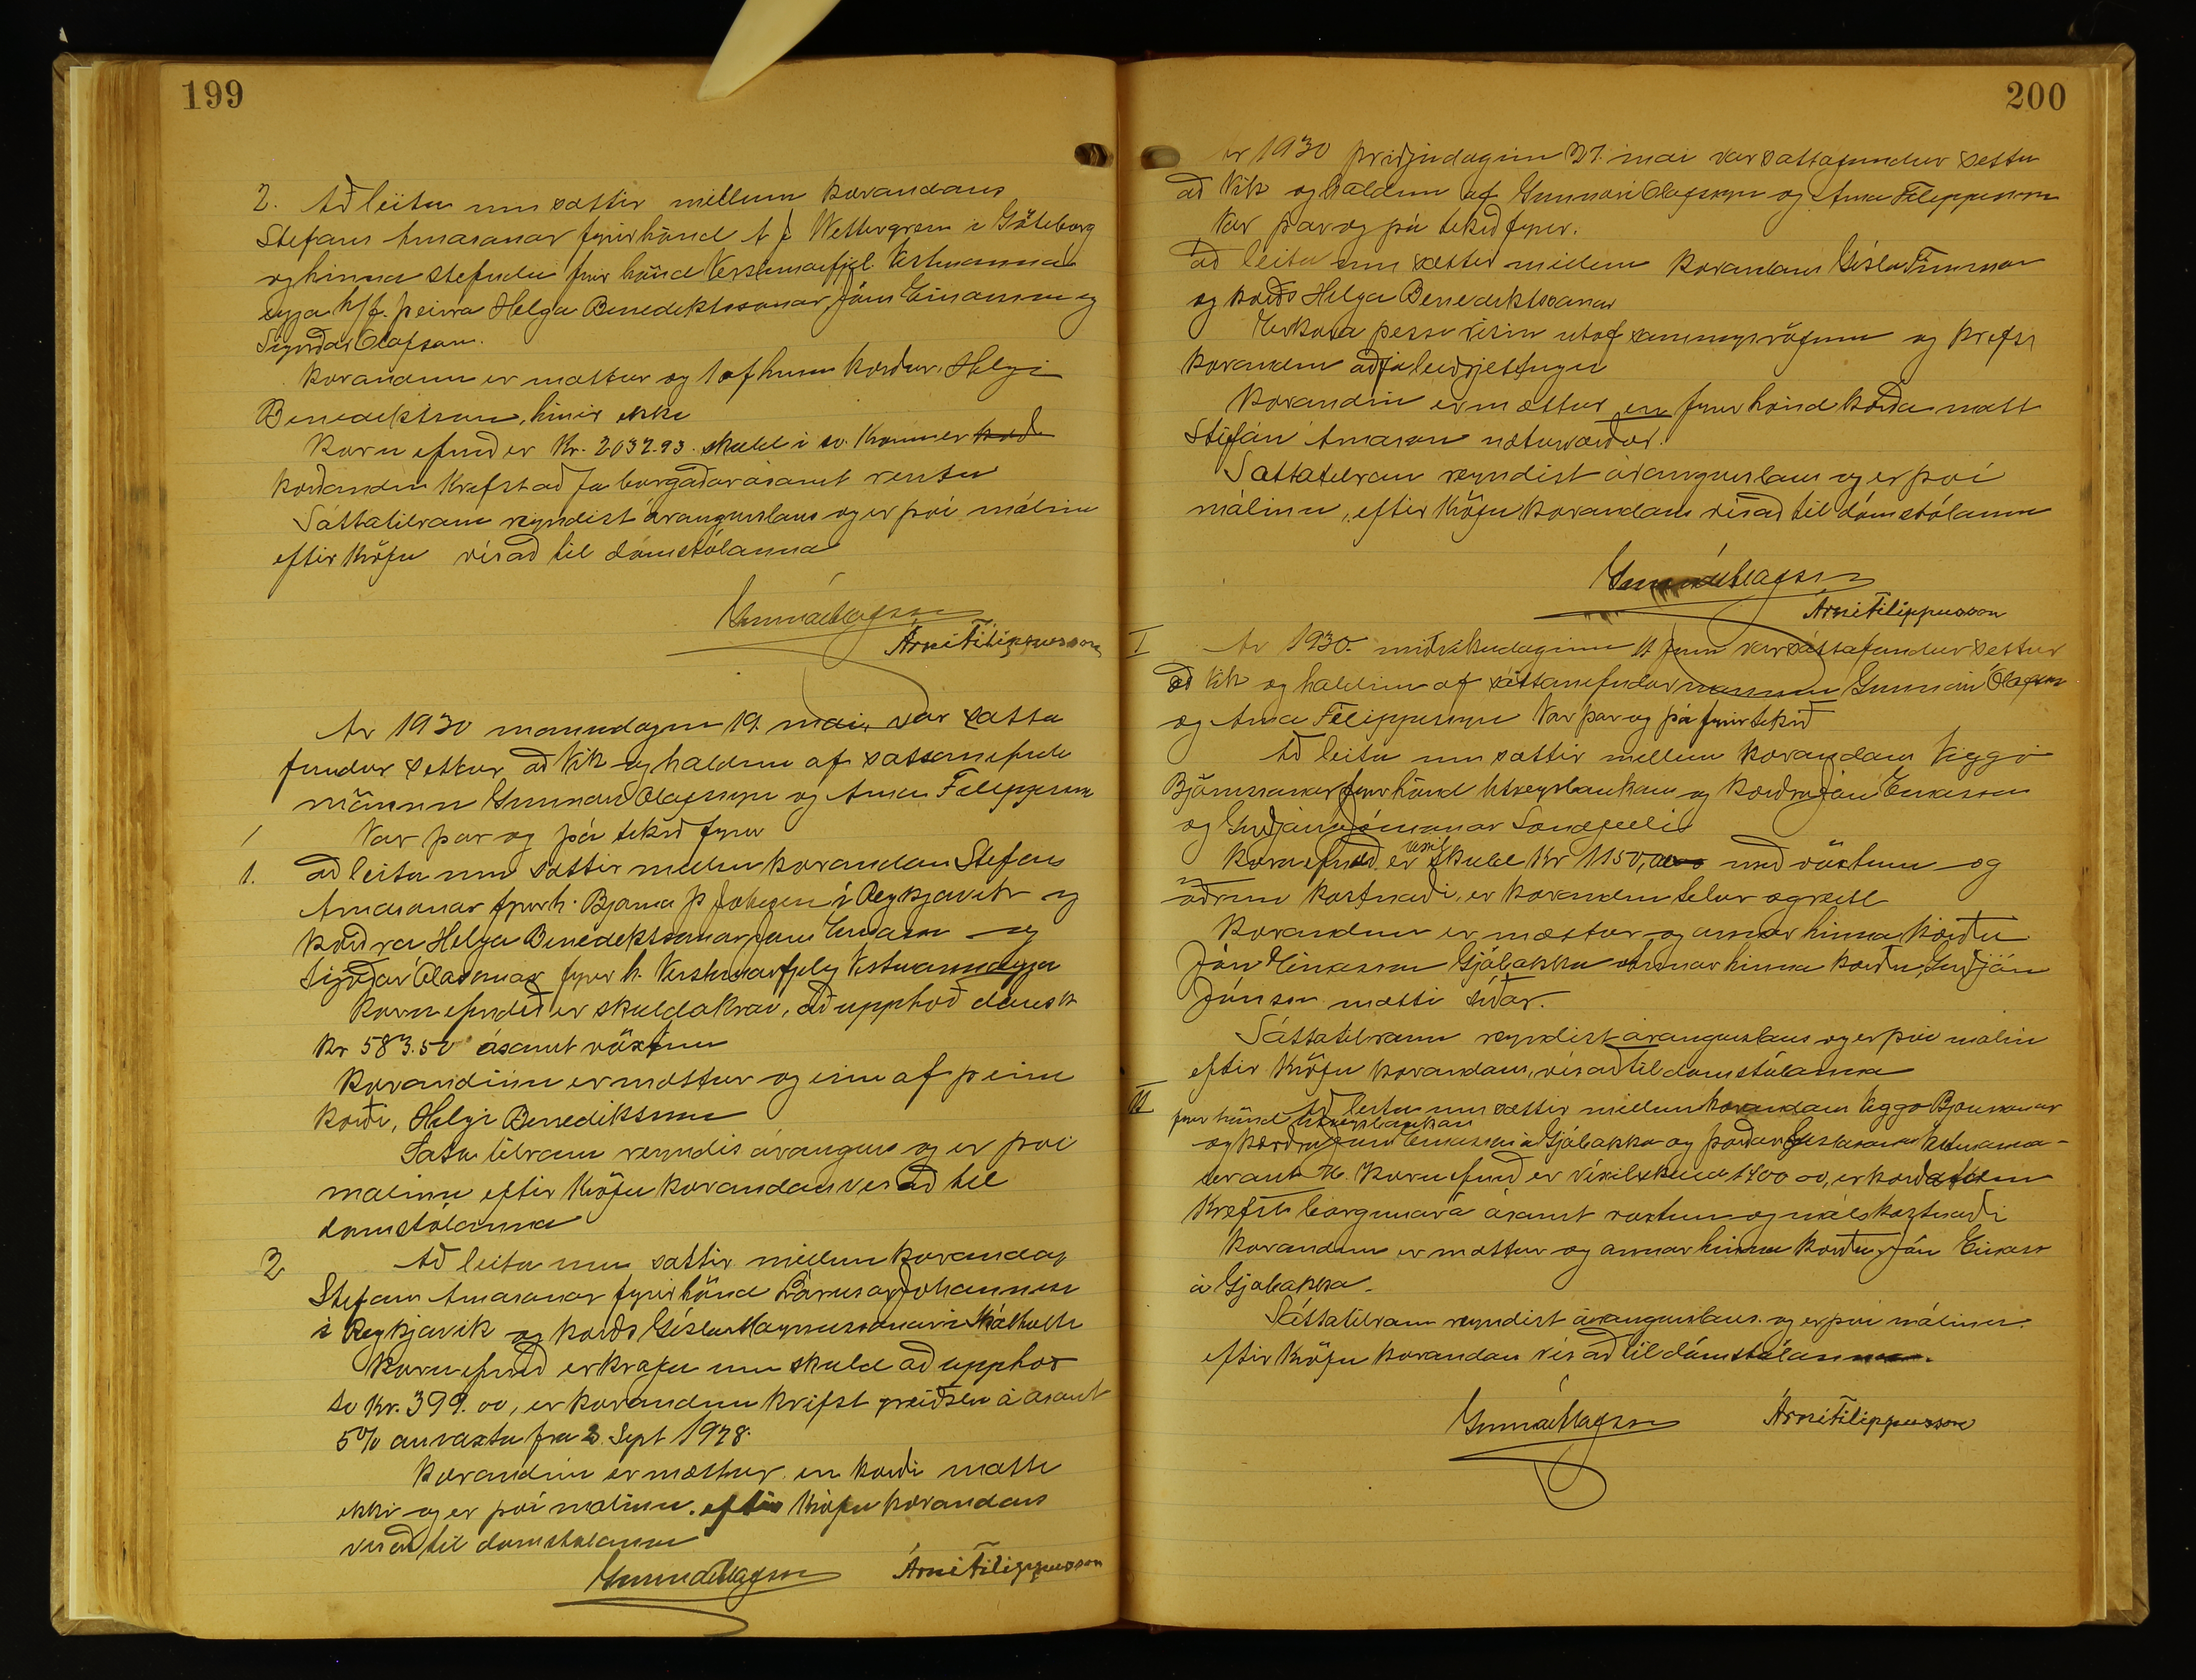 199
2. Að leita um sættir millum kærandans
Stefans Arnasonar fyrir hönd A J Wettergrem i Göteborg
og hinna stefndu fyrir hönd Verslunarfjel. Vestmanna
eyja h/f. þeirra Helga Benediktssonar, Jóns Einarssonar og
Sigurðar Olafsson.
Kærandinn er mættur og 1 af hinum kærður, Helgi
Benediktsson, hinir ekki
Kæruefnið er Kr. 2032.93. skuld i sv. Krónum er
kærandin krefst að fá borgaðar ásamt rentu
Sáttatilraun reyndist árangurslaus og er því málinu
eftir kröfu vísað til dómstólanna
Gunnar Olafsson
Árni Filippusson
Ar 1930 mánudaginn 19. mai, var sátta
fundur settur að Vik og haldinn af sáttanefnda
mönnum Gunnari Olafssyni og Arna Filippussyni
/ Var þar og þá tekið fyrir
1. að leita um sættir millum kærandans Stefans
Arnasonar fyrir h. Bjarna Þ Johnson í Reykjavík og
kærðra Helga Benediktssonar, Jóns Einarssonar og
Sigurðar Olasonar fyrir h. Verslunarfjelag Vestmannaeyja
Kæruefnið er skuldakrav, að upphæð dansk
Kr 583.50 ásamt vöxtum
Kærandinn er mættur og einn af þeim
kærði, Helgi Benediktsson
Sáttatilraun reyndis árangurs og er því
malinu eftir kröfu kærandans vísað til
domstólanna
2 Að leita um sættir millum kærandas
Stefans Arnasonar fyrir hönd Lárusar Johannessen
i Reykjavik og kærðs Gísla Magnussonar i Skálholti
Kæruefnið er krafa um skuld að upphæð
sv kr. 399.00, er kærandinn krefst greiðslu á ásamt
5% ársvaxta fra 3. Sept 1928.
Kærandinn er mættur en kærði mætti
ekki og er því malinu. eftir kröfu kærandans
vísað til domstolanna
Gunnar Olafsson Árni Filippusson
200
Ar 1930 þriðjudaginn 27. mai var sattafundur settur
að Vik og haldinn af Gunnari Olafssyni og Arna Filippussyni
Var þar og þá tekið fyrir.
að leita um sættir millum kærandans Gísla Finnssonar
og kærðs Helga Benediktssonar
Er kæra þessi risin utaf samningsrofum og krefst
kærandinn að fá leiðrjettingu
Kærandin er mættur en fyrir hönd kærða mætti
Stefán Arnason næturvörður.
Sættatilraun reyndist árangurslaus og er því
málinu, eftir kröfu kærandans vísað til dómstólanna
Gunnar Olafsson
Árni Filippusson
I Ar 1930. miðvikudaginn 11 Juni var sáttafundur settur
að Vik og haldinn af sáttanefndarmönnum Gunnari Ólafssyni
og Arna Filippussyni Var þar og þá fyrirtekið
Að leita um sættir millum kærandans Viggó
Björnssonar fyrir hönd Utvegsbankans og kærðra Jóns Einarssonar
og Guðjóns Jónssonar Sandfelli
Kæruefnið er víxil skuld Kr 1150,00 með vöxtum og
öðrum kostnaði, er kærandinn telur ógreitt
Kærandinn er mættur og annar hinna kærðu
Jón Einarsson Gjábakka annar hinna kærðu, Guðjón
Jónsson mætti síðar.
Sáttatilraun reyndist árangurslaus og er því málin
eftir kröfu kærandans, vísað til dómstólanna
II Að leita um sættir millum kærandans Viggo Björnssonar
fyrir hönd Utvegsbankans
og kærðra Jóns Einarssonar á Gjábakka og Þórðar Gíslasonar
Kæruefnið er víxilskuld 1400 00, er kærandinn
krefst borgunar á ásamt vöxtum og málskostnaði
Kærandinn er mættur og annar hinna kærðu, Jón Einarsson
á Gjabakka.
Sáttatilraun reyndist árangurslaus. og er því málinu.
eftir kröfu kærandans vísað til dómstólanna.
Gunnar Olafsson Árni Filippusson